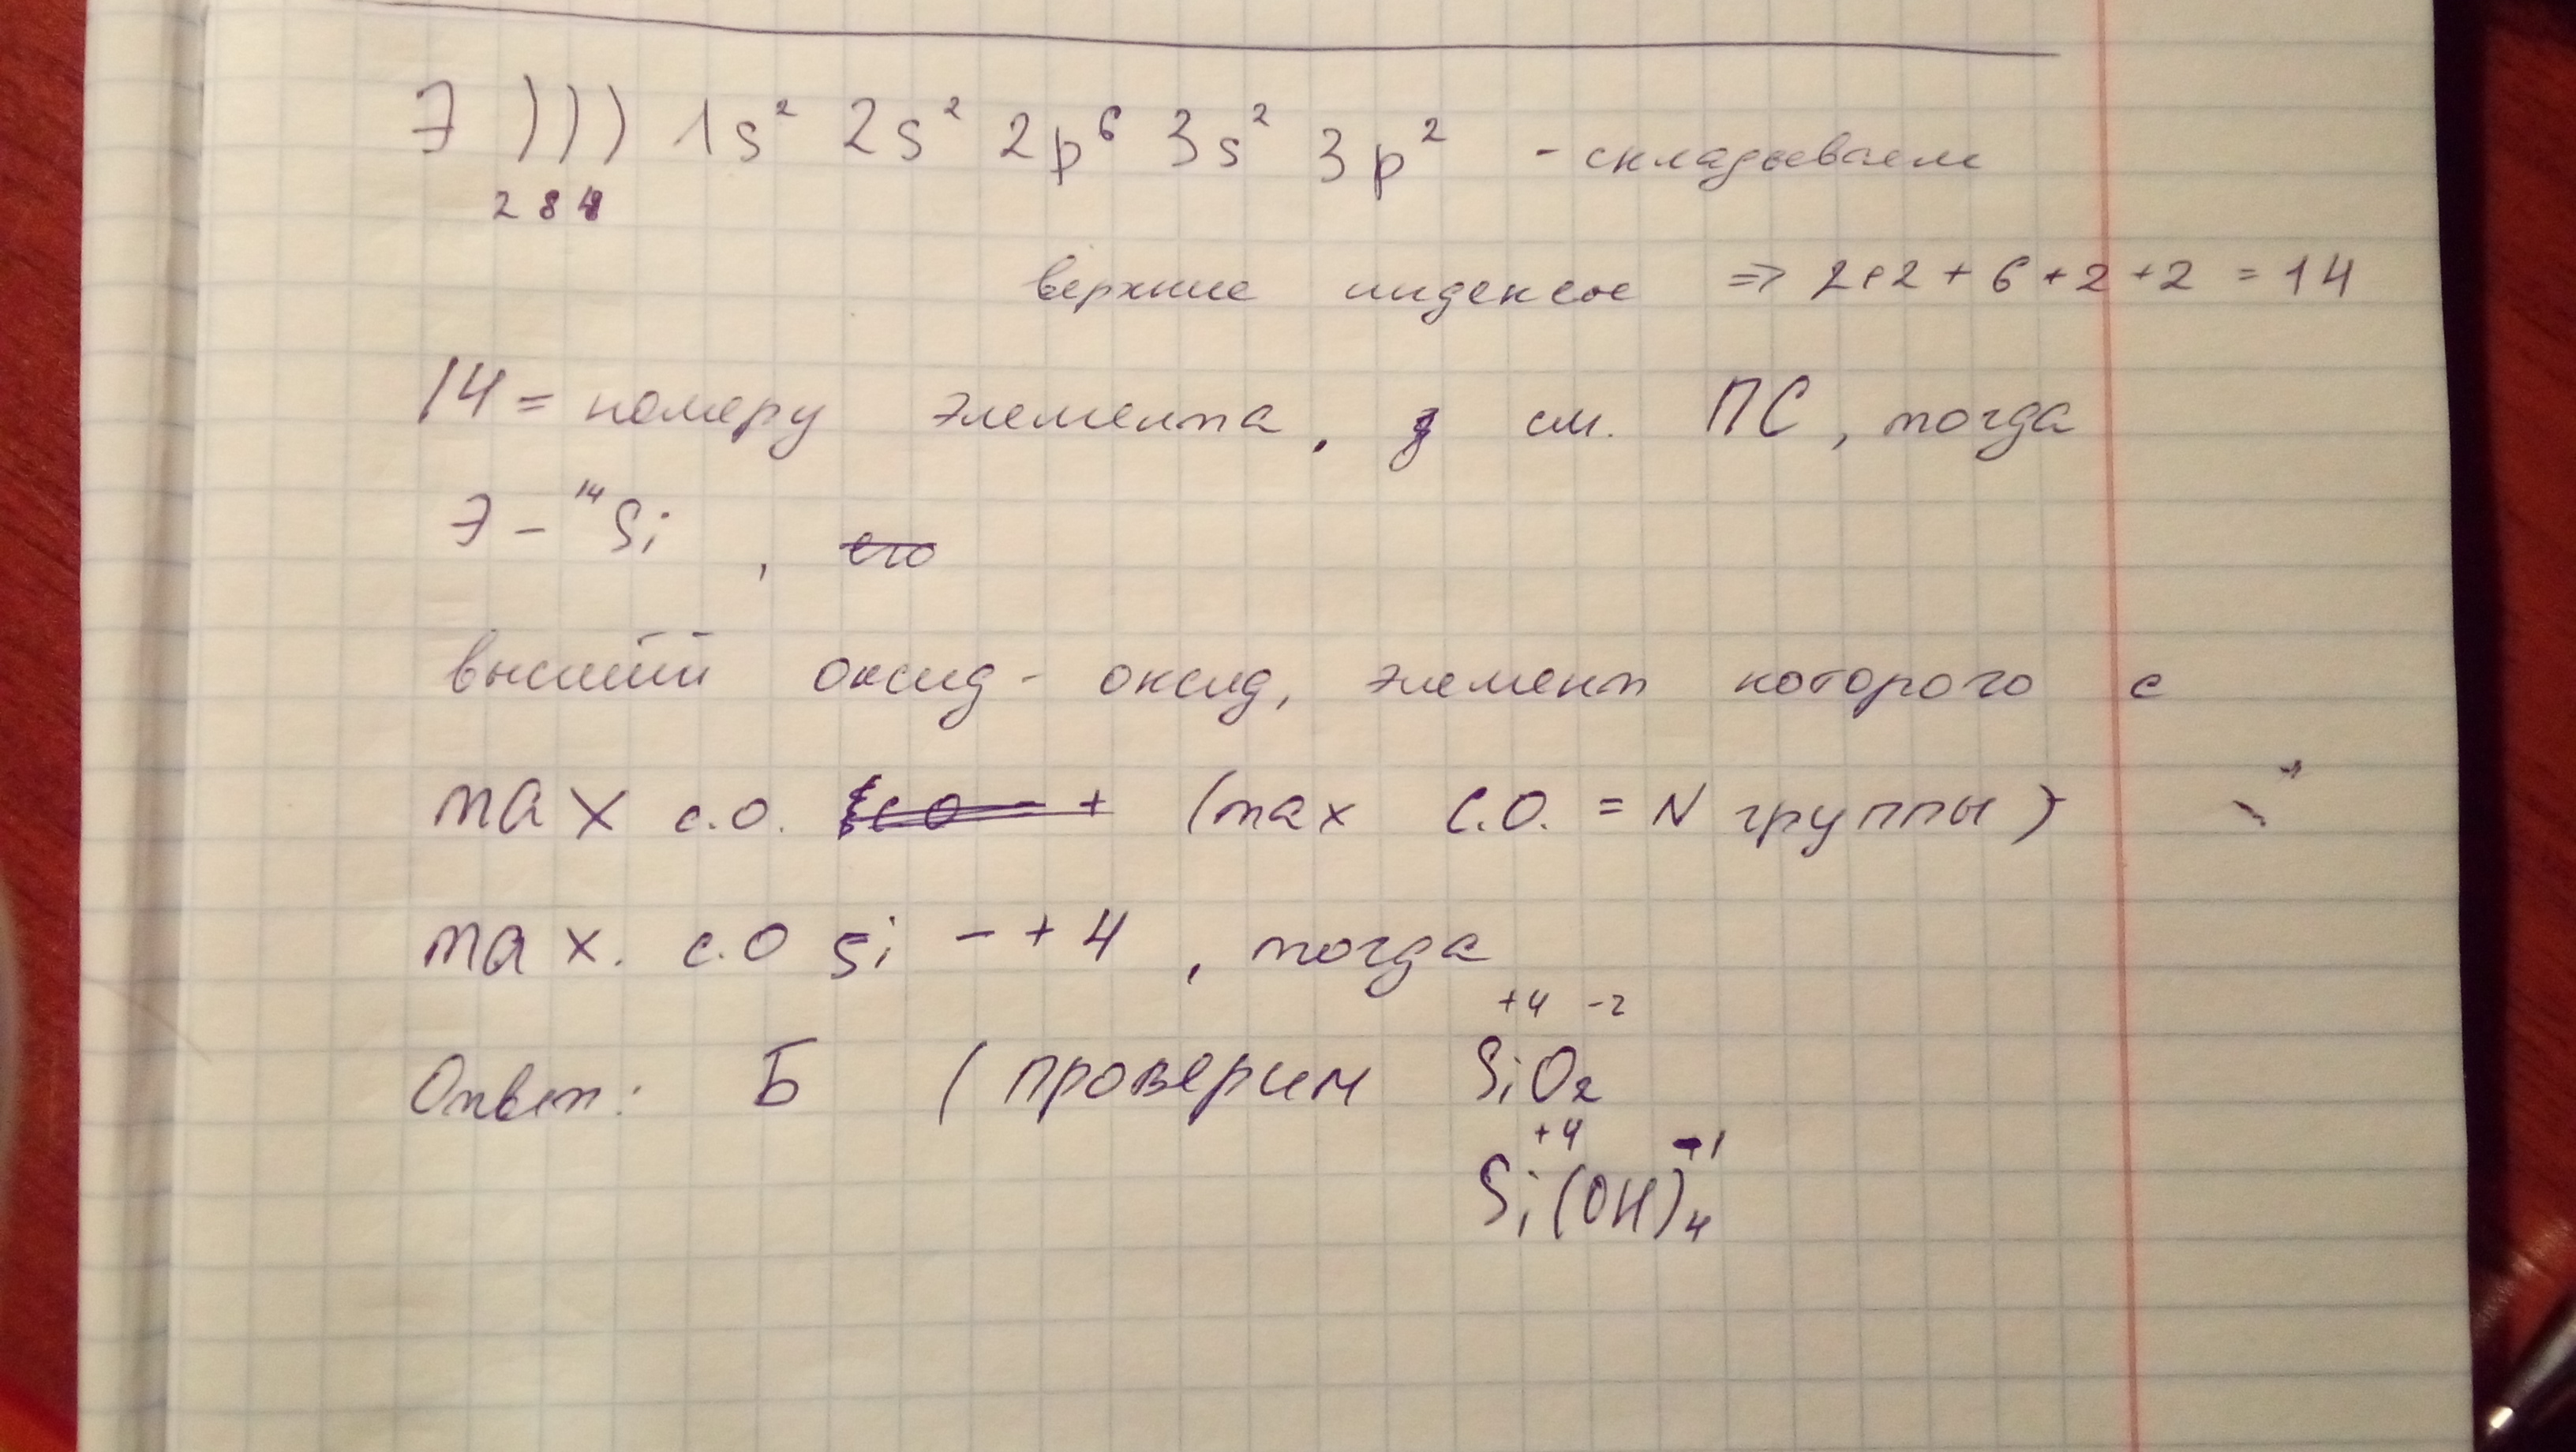 Э ))) 1s² 2s² 2p⁶ 3s² 3p² - складываем
2 8 4
верхние индексы => 2+2+6+2+2 = 14
14 = номеру элемента, см. ПС, тогда
Э - ¹⁴Si , его
высший оксид - оксид, элемент которого с
max с.о. (max С.О. = N группы)
max. с.О Si - +4 , тогда
+4 -2
Ответ: Б (проверим SiO₂
+4 -1
Si(OH)₄